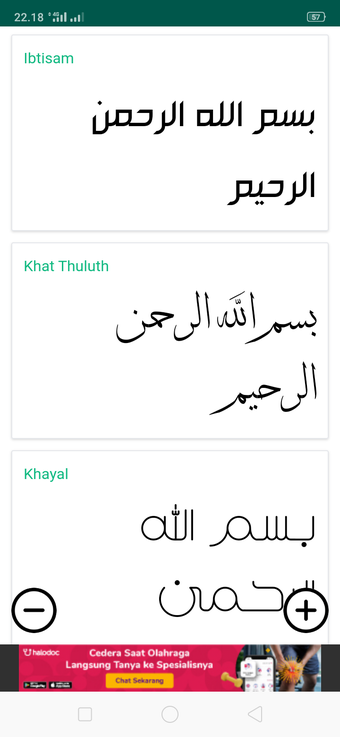 22.18
4G
57
Ibtisam
بسم الله الرحمن
الرحيم
Khat Thuluth
بسم الله الرحمن
الرحيم
Khayal
بسم الله
الرحمن
halodoc
Cedera Saat Olahraga
Langsung Tanya ke Spesialisnya
Chat Sekarang